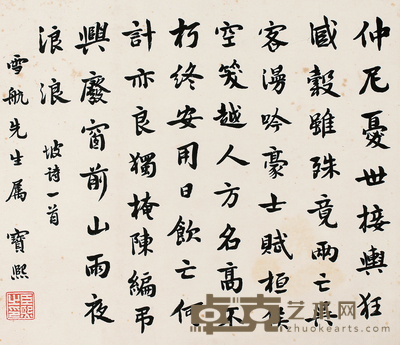 仲尼憂世接輿狂
臧穀雖殊竟兩亡吳
客漫吟豪士賦桓侯
空笑越人方名高不
朽終安用日飲亡何
計亦良獨掩陳編弔
興廢窗前山雨夜
浪浪 坡詩一首
雪航先生屬 寶熙
卓克艺术网
zhuokearts.com